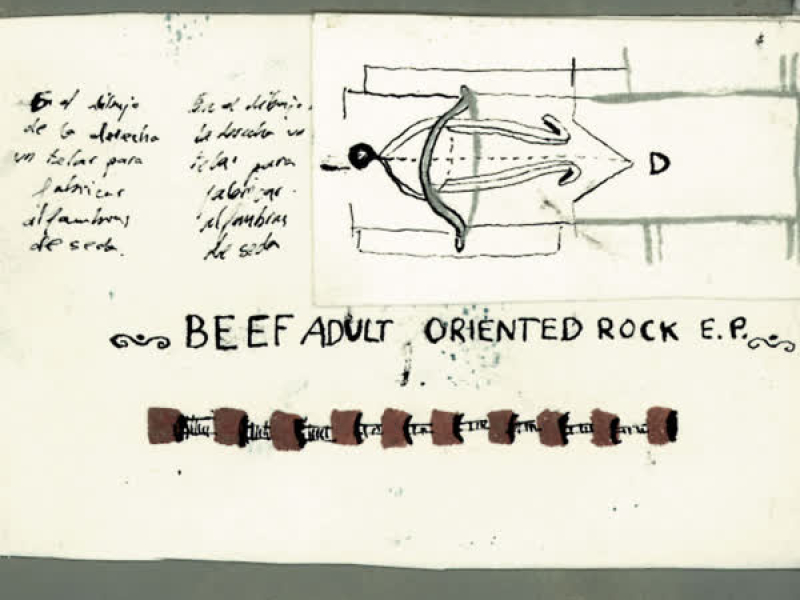 En el dibujo
de la derecha
un telar para
fabricar
alfombras
de seda.
En el dibujo
la derecha un
telar para
fabrigar
alfombras
de seda
D
BEEF ADULT ORIENTED ROCK E.P.